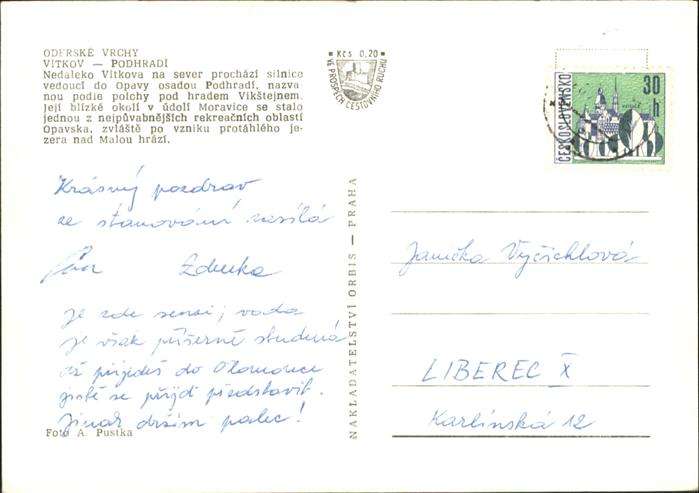 ODERSKÉ VRCHY
VÍTKOV — PODHRADÍ
Nedaleko Vítkova na sever prochází silnice
vedoucí do Opavy osadou Podhradí, nazva
nou podle polohy pod hradem Vikštejnem.
Její blízké okolí v údolí Moravice se stalo
jednou z nejpůvabnějších rekreačních oblastí
Opavska, zvláště po vzniku protáhlého je-
zera nad Malou hrází.
Kčs 0,20
VE PROSPĚCH CESTOVNÍHO RUCHU
ČESKOSLOVENSKO
30
h
Krásný pozdrav
ze stanování zasílá
Zdenka
Je zde sensi; voda
je však příšerně studená
Až přijedeš do Olomouce
jistě se přijď představit.
Jinak držím palec!
Foto A. Pustka
NAKLADATELSTVÍ ORBIS — PRAHA
Janička Vyčichlová
LIBEREC X
Karlínská 12